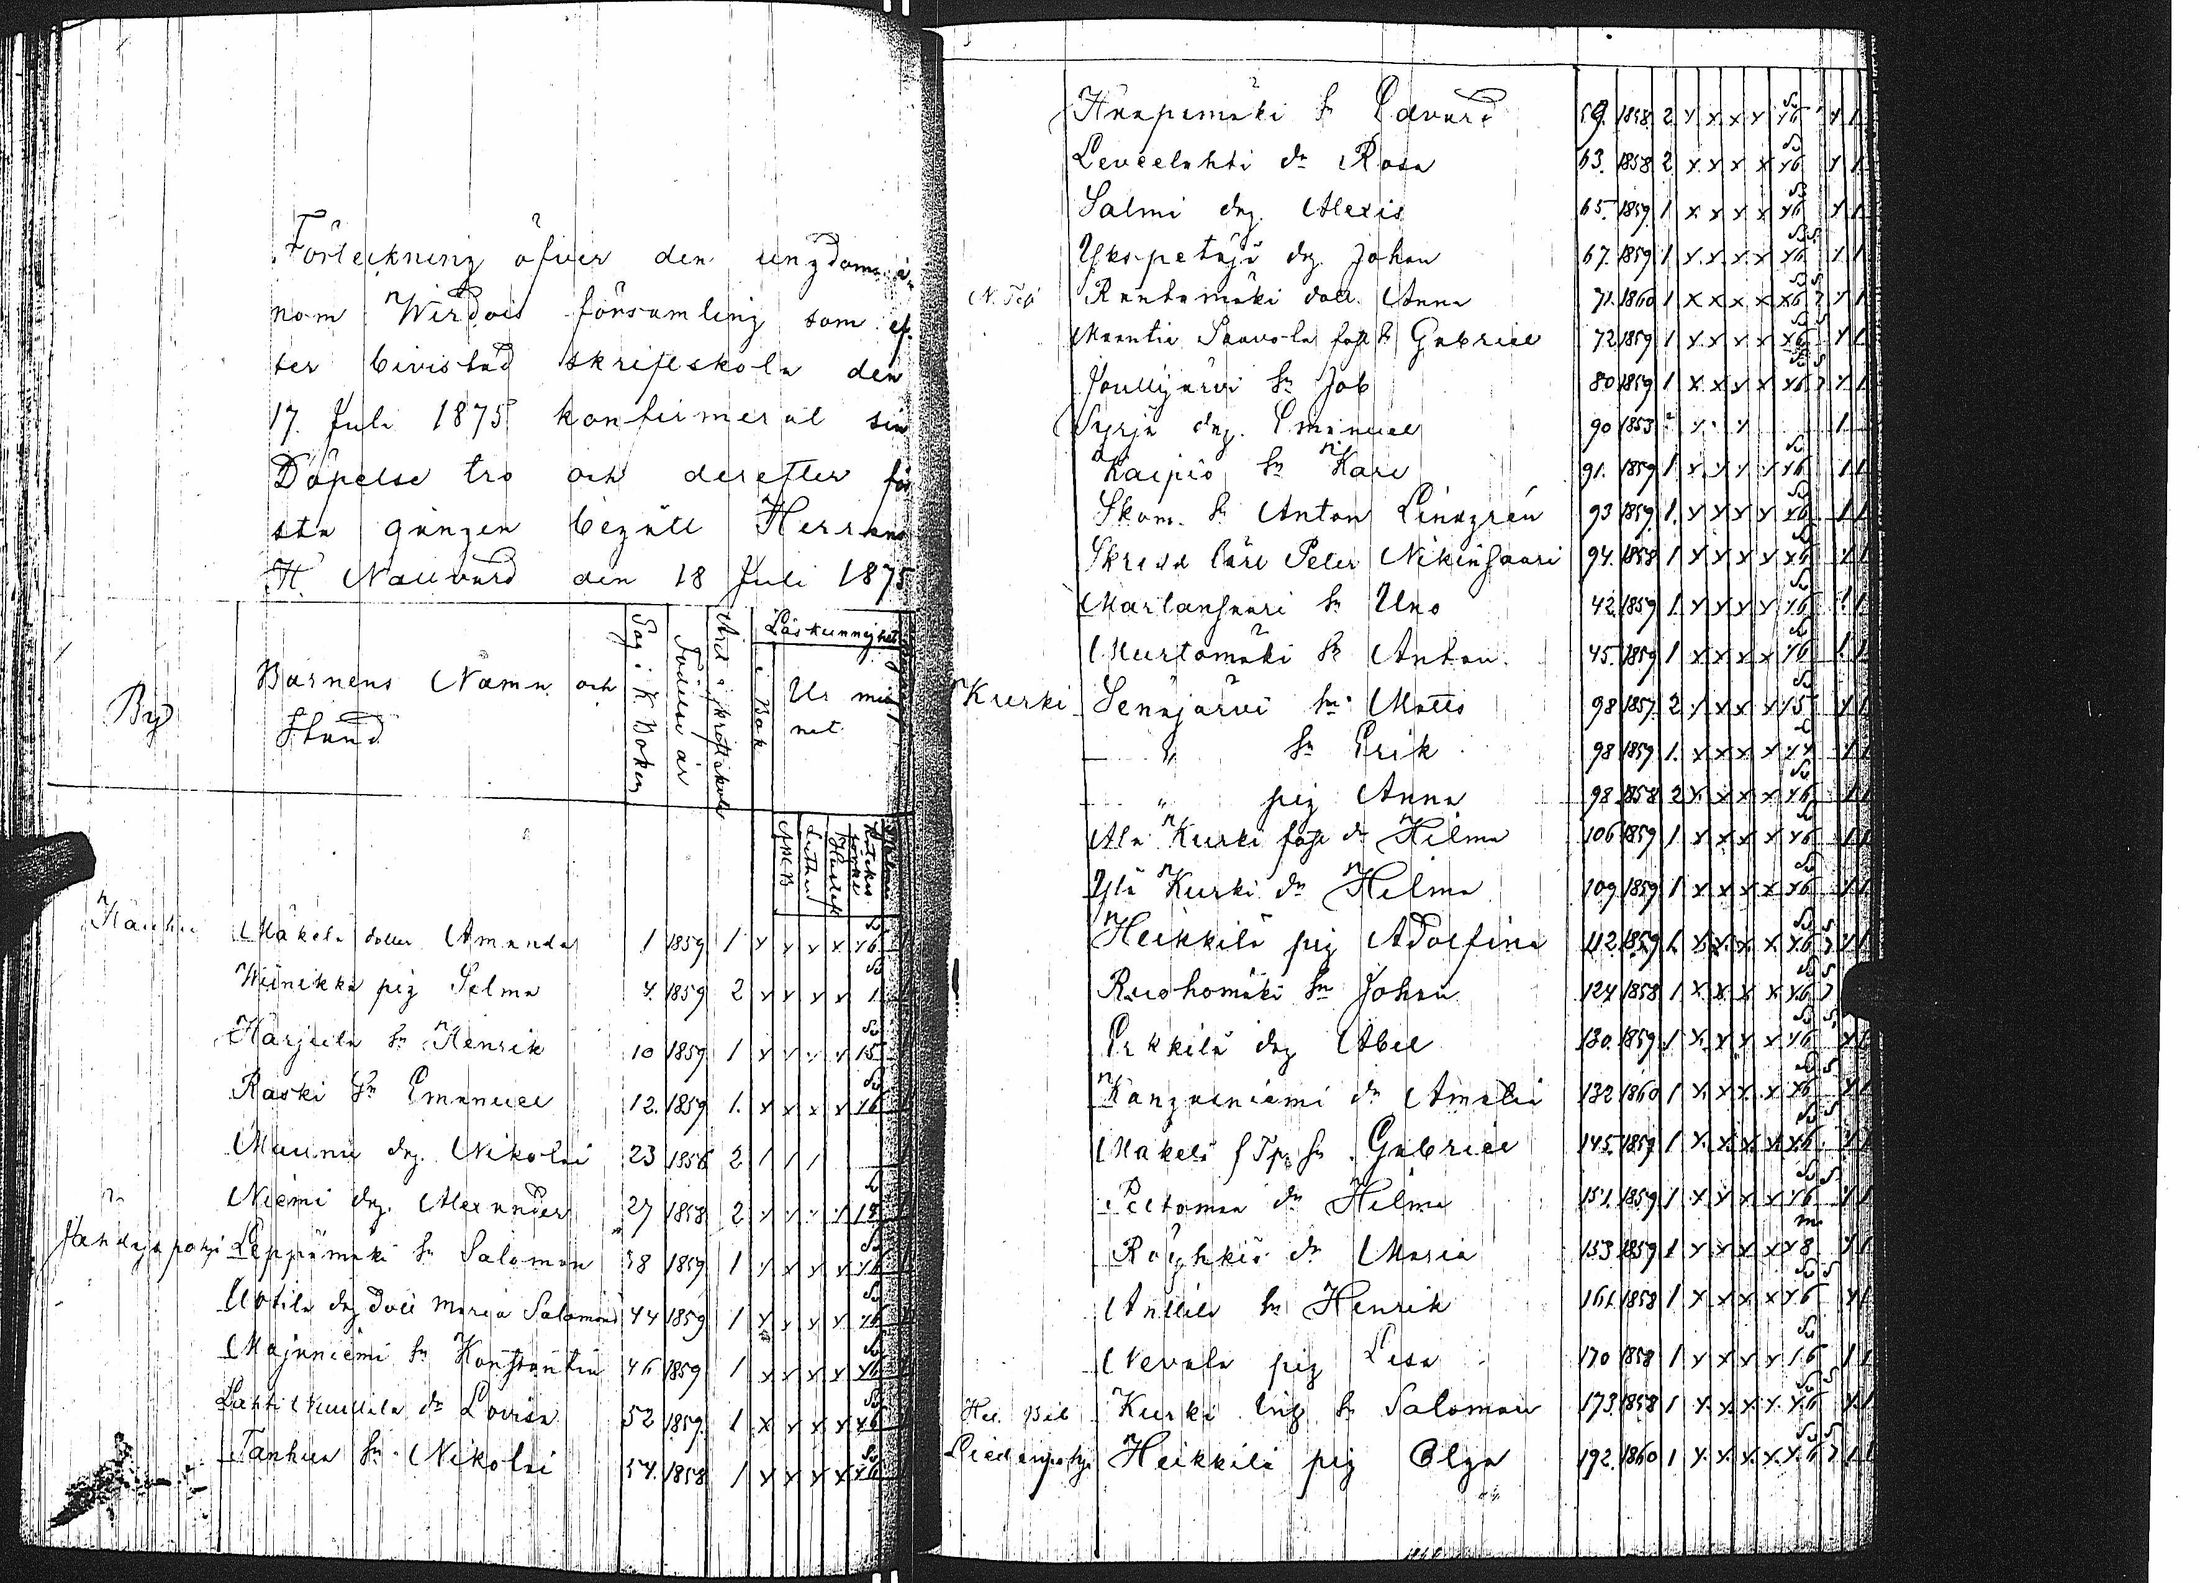 Förteckning öfver den ungdom i-
nom Wirdois församling som ef-
ter bivistad skriftskola den
17. Juli 1875 konfirmerat sin
Döpelse tro och derefter för
sta gången begått Herrans
H. Nattvard den 18 Juli 1875
By
Barnens Namn och
Stånd
Pag. i K. Boken
Födelse år
Läskunnighet
i Bok
Ur min
net
ABCB
Luther
Mäkelä dotter Amanda 1 1859 1 x x x x x6
Wiinikka pig Selma 4. 1859 2 x x x x
Harjula Sn Henrik 10 1859 1 x x x x 15
Raski Sn Emanuel 12. 1859 1. x x x x 16
Maunu drg. Nikolai 23 1856 2 / / /
Niemi drg. Alexander 27 1858 2
Jähdyspohja Leppämäki Sn Salomon 38 1859 1 x x x x x6
Uotila drg dott Maria Salomons 44 1859 1 x x x x x6
Majaniemi Sn Konstantin 46 1859 1 x x x x x6
Lahti dr Lovisa 52 1859. 1 x x x x x6
Tanhua Sn Nikolai 54. 1858 1 x x x x x6
Haapamäki Sn Edvard 59. 1858. 2 x x x x x6 x 1
Leveelahti dr Rosa 63. 1858 2 x x x x x6 x 1
Salmi drg. Alexis 65. 1859. 1 x x x x x6 x 1
Ykspetäjä drg. Johan 67. 1859 1 x x x x x6 x 1
Rantamäki dott. Anna 71. 1860 1 x x x x x6 x 1
Saavola Sn Gabriel 72 1859 1 x x x x x6 x 1
Joutijärvi Sn Job 80 1859 1 x x x x x6 x 1
Syrjä drg. Emanuel 90 1853
Kaipio Sn Karl 91. 1859 1 x x x x x6 1 1
Skom. Sn Anton Lindgrén 93 1859. 1. x x x x x6 1 1
Skredd lärl Peter 94. 1858 1 x x x x x6 x 1
Martansaari Sn Uno 42. 1859 1. x x x x x6 1 1
Murtomäki Sn Anton. 45. 1859 1 x x x x x6 1 1
Kurki Senäjärvi Sn Matts 98 1857. 2 x x x x 15 x 1
" Sn Erik 98 1859 1. x x x x
" pig Anna 98. 1858 2 x x x x x6 1 1
Ala Kurki dr Hilma 106 1859 1 x x x x x6 1 1
Ylä Kurki dr Helma 109. 1859 1 x x x x x6 1 1
Heikkilä pig Adolfina 112. 1859 1. x x x x x6 x 1
Ruohomäki Sn Johan 124 1858 1 x x x x x6
Erkkilä drg Abel 130. 1859 1 x x x x x6 x 1
Kangasniemi dr Amalia 132 1860 1 x x x x x6 x 1
Mäkelä Sn Gabriel 145. 1859 1 x x x x x6 x 1
Peltomaa dr Helma 151. 1859 1 x x x x x6 x 1
Röyhkiö dr Maria 153. 1859 1 x x x x x8 x 1
Anttila Sn Henrik 161. 1858 1 x x x x x6 x 1
Nevala pig Lisa 170 1858 1 x x x x 16 1 1
Kurki Sn Salomon 173. 1858 1 x x x x x6 x 1
Heikkilä pig Olga 192. 1860 1 x x x x x6 1 1